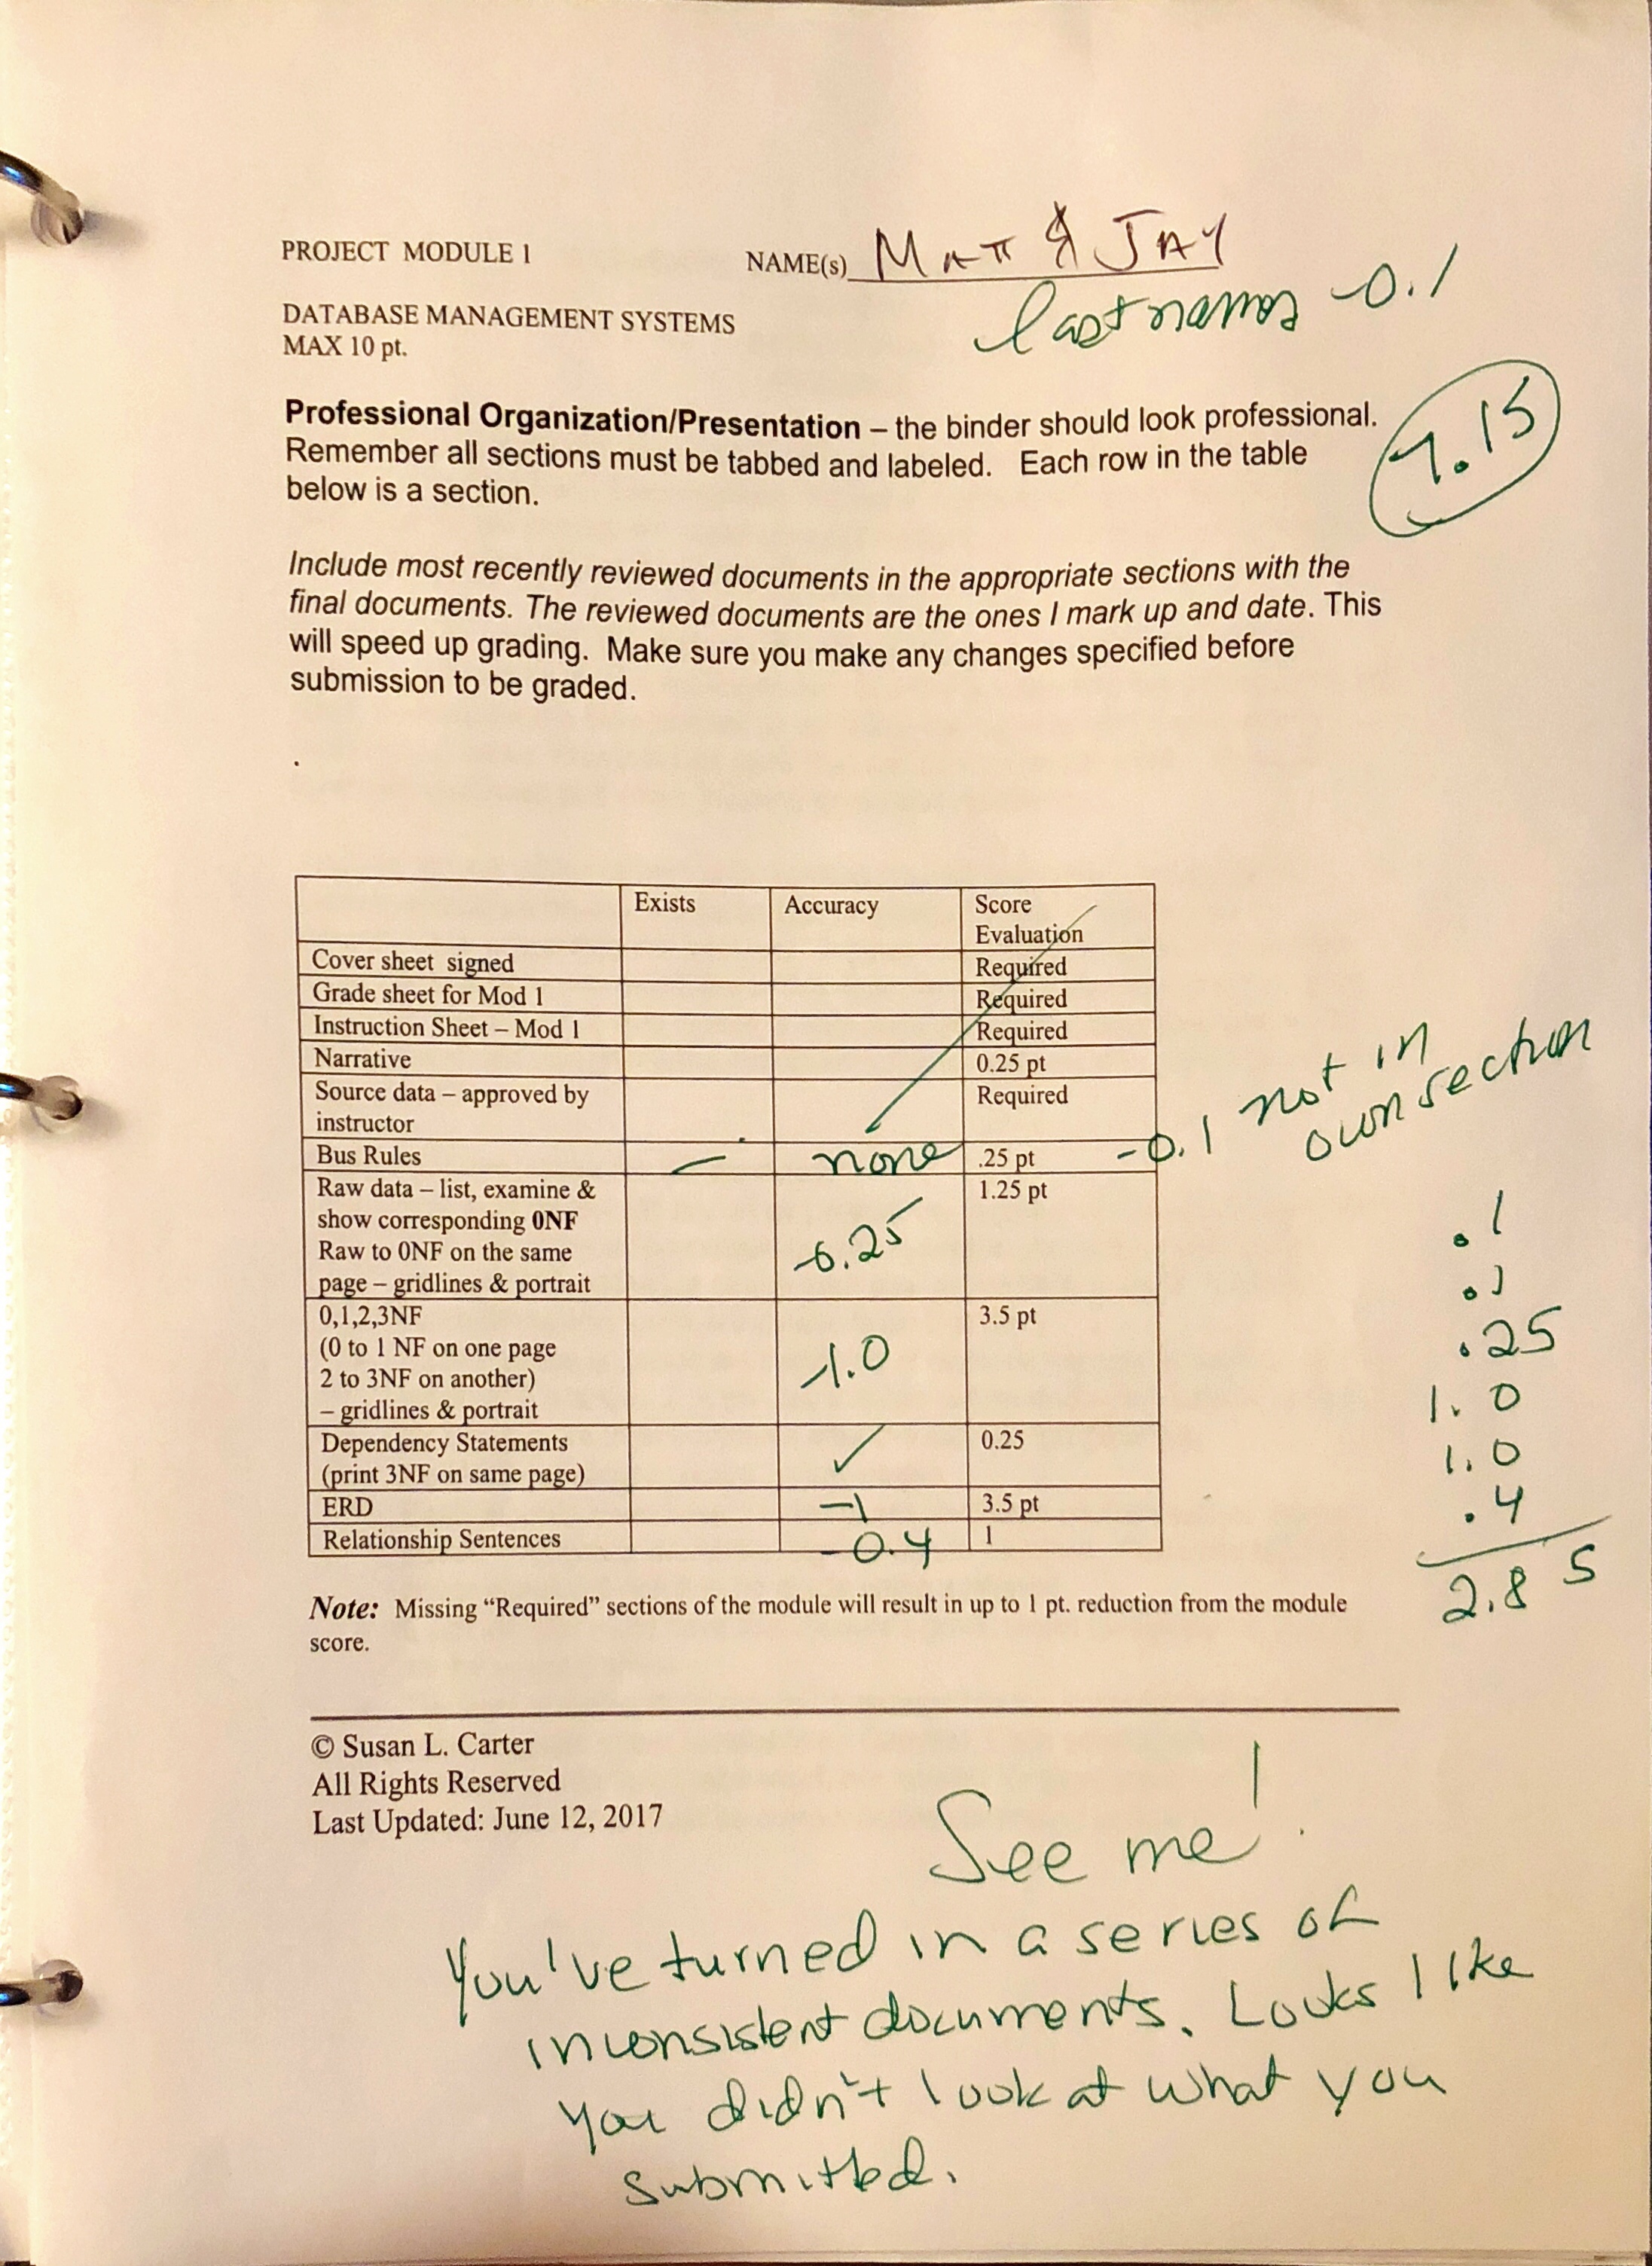 PROJECT MODULE 1
NAME(s) MATT & JAY
last names -0.1
DATABASE MANAGEMENT SYSTEMS
MAX 10 pt.
7.15
Professional Organization/Presentation – the binder should look professional.
Remember all sections must be tabbed and labeled. Each row in the table
below is a section.
Include most recently reviewed documents in the appropriate sections with the
final documents. The reviewed documents are the ones I mark up and date. This
will speed up grading. Make sure you make any changes specified before
submission to be graded.
Exists Accuracy Score
Evaluation
Cover sheet signed Required
Grade sheet for Mod 1 Required
Instruction Sheet – Mod 1 Required
Narrative 0.25 pt
Source data – approved by Required
instructor
Bus Rules – none .25 pt -0.1 not in
own section
Raw data – list, examine & 1.25 pt
show corresponding 0NF
Raw to 0NF on the same -0.25
page – gridlines & portrait
0,1,2,3NF 3.5 pt
(0 to 1 NF on one page -1.0
2 to 3NF on another)
– gridlines & portrait
Dependency Statements ✓ 0.25
(print 3NF on same page)
ERD -1 3.5 pt
Relationship Sentences -0.4 1
.1
.1
.25
1.0
1.0
.4
2.85
Note: Missing “Required” sections of the module will result in up to 1 pt. reduction from the module
score.
© Susan L. Carter
All Rights Reserved
Last Updated: June 12, 2017
See me!
You've turned in a series of
inconsistent documents. Looks like
you didn't look at what you
submitted.